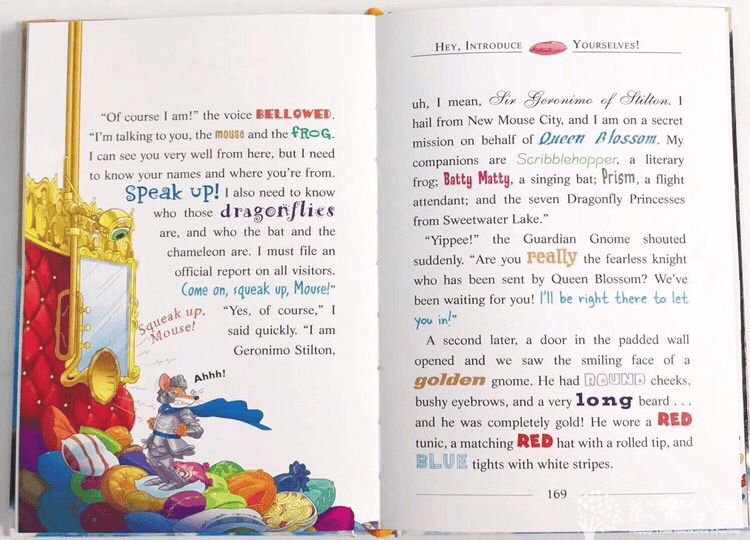 "Of course I am!" the voice BELLOWED.
"I'm talking to you, the mouse and the FROG.
I can see you very well from here, but I need
to know your names and where you're from.
SPEAK UP! I also need to know
who those dragonflies
are, and who the bat and the
chameleon are. I must file an
official report on all visitors.
Come on, squeak up, Mouse!"
"Yes, of course," I
said quickly. "I am
Geronimo Stilton,
Squeak up,
Mouse!
Ahhh!
HEY, INTRODUCE YOURSELVES!
uh, I mean, Sir Geronimo of Stilton. I
hail from New Mouse City, and I am on a secret
mission on behalf of Queen Blossom. My
companions are Scribblehopper, a literary
frog; Batty Matty, a singing bat; Prism, a flight
attendant; and the seven Dragonfly Princesses
from Sweetwater Lake."
"Yippee!" the Guardian Gnome shouted
suddenly. "Are you really the fearless knight
who has been sent by Queen Blossom? We've
been waiting for you! I'll be right there to let
you in!"
A second later, a door in the padded wall
opened and we saw the smiling face of a
golden gnome. He had ROUND cheeks,
bushy eyebrows, and a very long beard . . .
and he was completely gold! He wore a RED
tunic, a matching RED hat with a rolled tip, and
BLUE tights with white stripes.
169